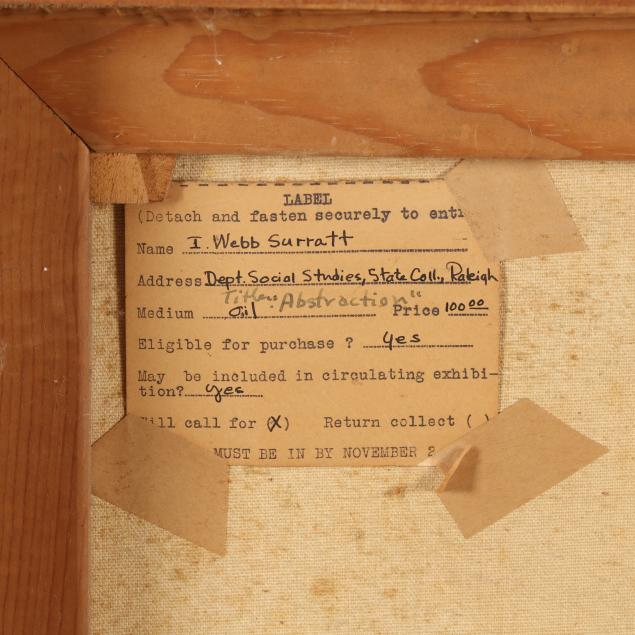 LABEL
(Detach and fasten securely to
Name I. Webb Surratt
Address Dept. Social Studies, State Coll., Raleigh
Title: "Abstraction"
Medium Oil Price 100 00
Eligible for purchase ? yes
May be included in circulating exhibi-
tion? yes
ill call for (X) Return collect ( )
MUST BE IN BY NOVEMBER